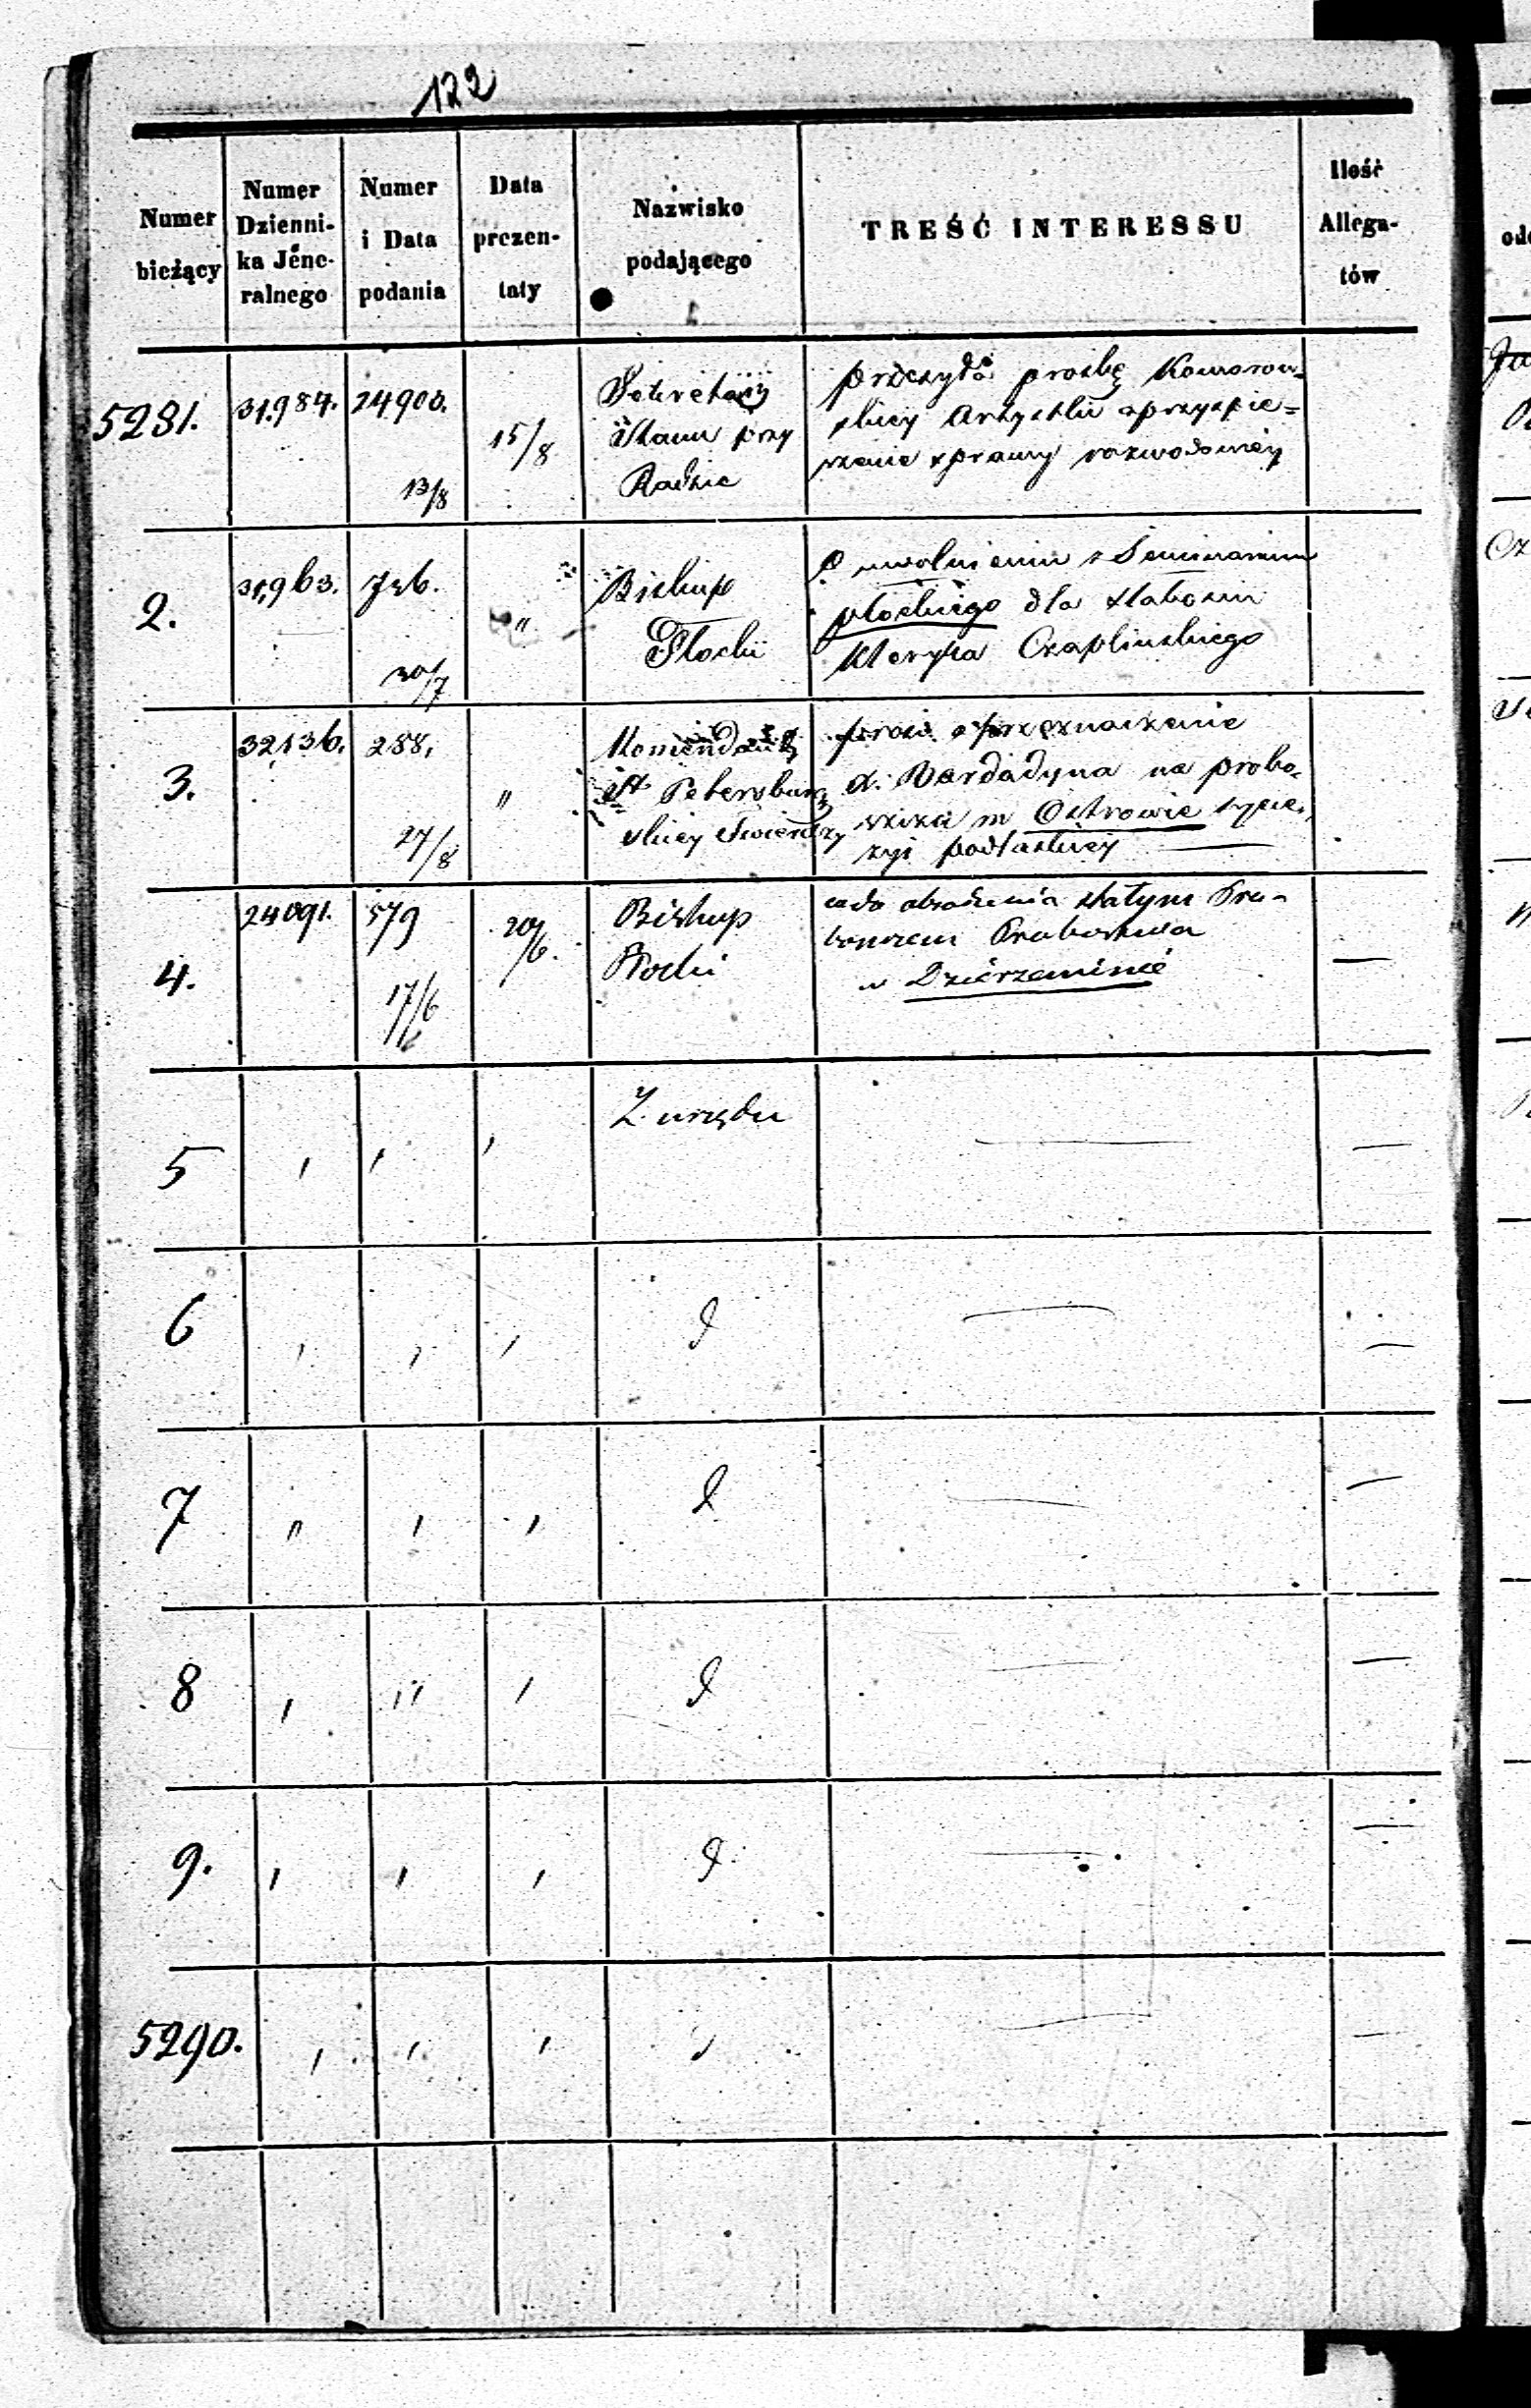 122
Numer bieżący
Numer Dzienni-ka Jene-ralnego
Numer i Data podania
Data prezen-taty
Nazwisko podającego
TREŚĆ INTERESSU
Ilość Allega-tów
5281. 31,984. 24903. 13/8 15/8
Sekretarz
Stanu przy
Radzie
przesyła prośbę Komorow-
skiej Artystki o przyspie=
szenie sprawy rozwodowéj
2. 31,963. 736. 30/7 "
Biskup
Płocki
O uwolnieniu z Seminarium
płockiego dla słabości
kleryka Czaplinskiego
3. 32136. 288, 27/8 "
St Petersburg
skiey
prosi o przeznaczenie
X. Bardadyna na probo-
szcza w Ostrowie
podlaskiej
4. 24091. 579 17/6 20/6.
Biskup
Płocki
co do obsadzenia stałym Pro-
boszczem Probostwa
w Dzierzeninie
—
5 , , ,
Z urzędu
— —
6 , , , d — —
7 " , , d — —
8 , " , d — —
9. , , , d — —
5290. , , , d — —